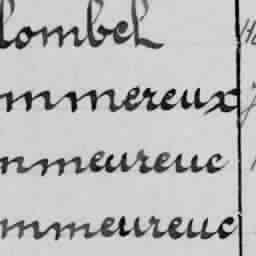 lombel
mmereux
nmeureuc
mmeureuc